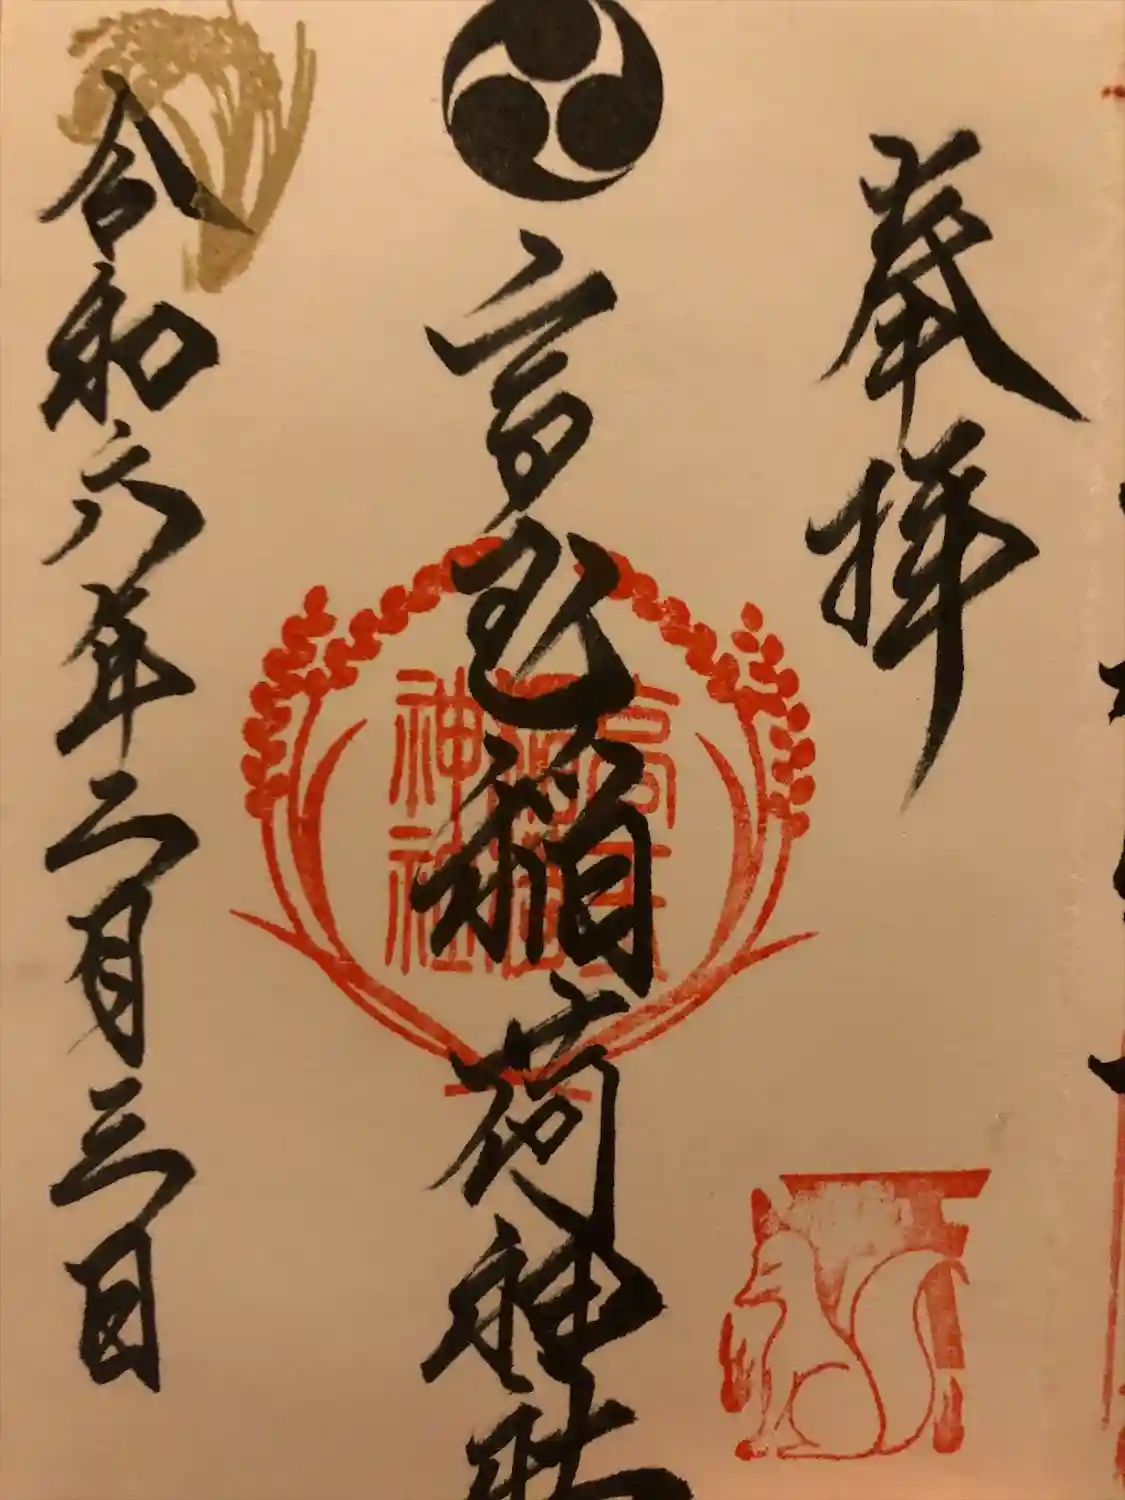 奉拝
高稲荷神社
令和六年二月三日
高
稲荷
神社